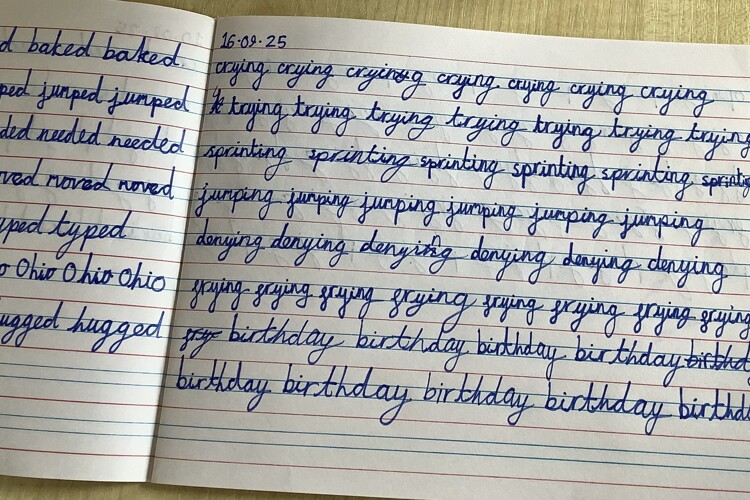 d baked baked.
ped jumped jumped
ded needed needed
ved moved moved
yped typed
o Ohio Ohio Ohio
ugged hugged
16.09.25
crying crying crying crying crying crying crying
trying trying trying trying trying trying trying
sprinting sprinting sprinting sprinting sprinting sprintin
jumping jumping jumping jumping jumping jumping
denying denying denying denying denying denying
frying frying frying frying frying frying frying frying
birthday birthday birthday birthday birthda
birthday birthday birthday birthday birthda